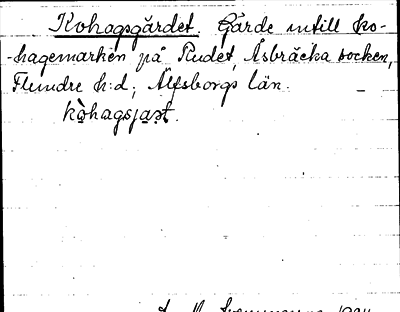 Kohagsgärdet. Gärde intill ko-
-hagemarken på Rudet, Åsbräcka socken,
Flundre h:d, Älfsborgs län.
kòhagsjaʒt.